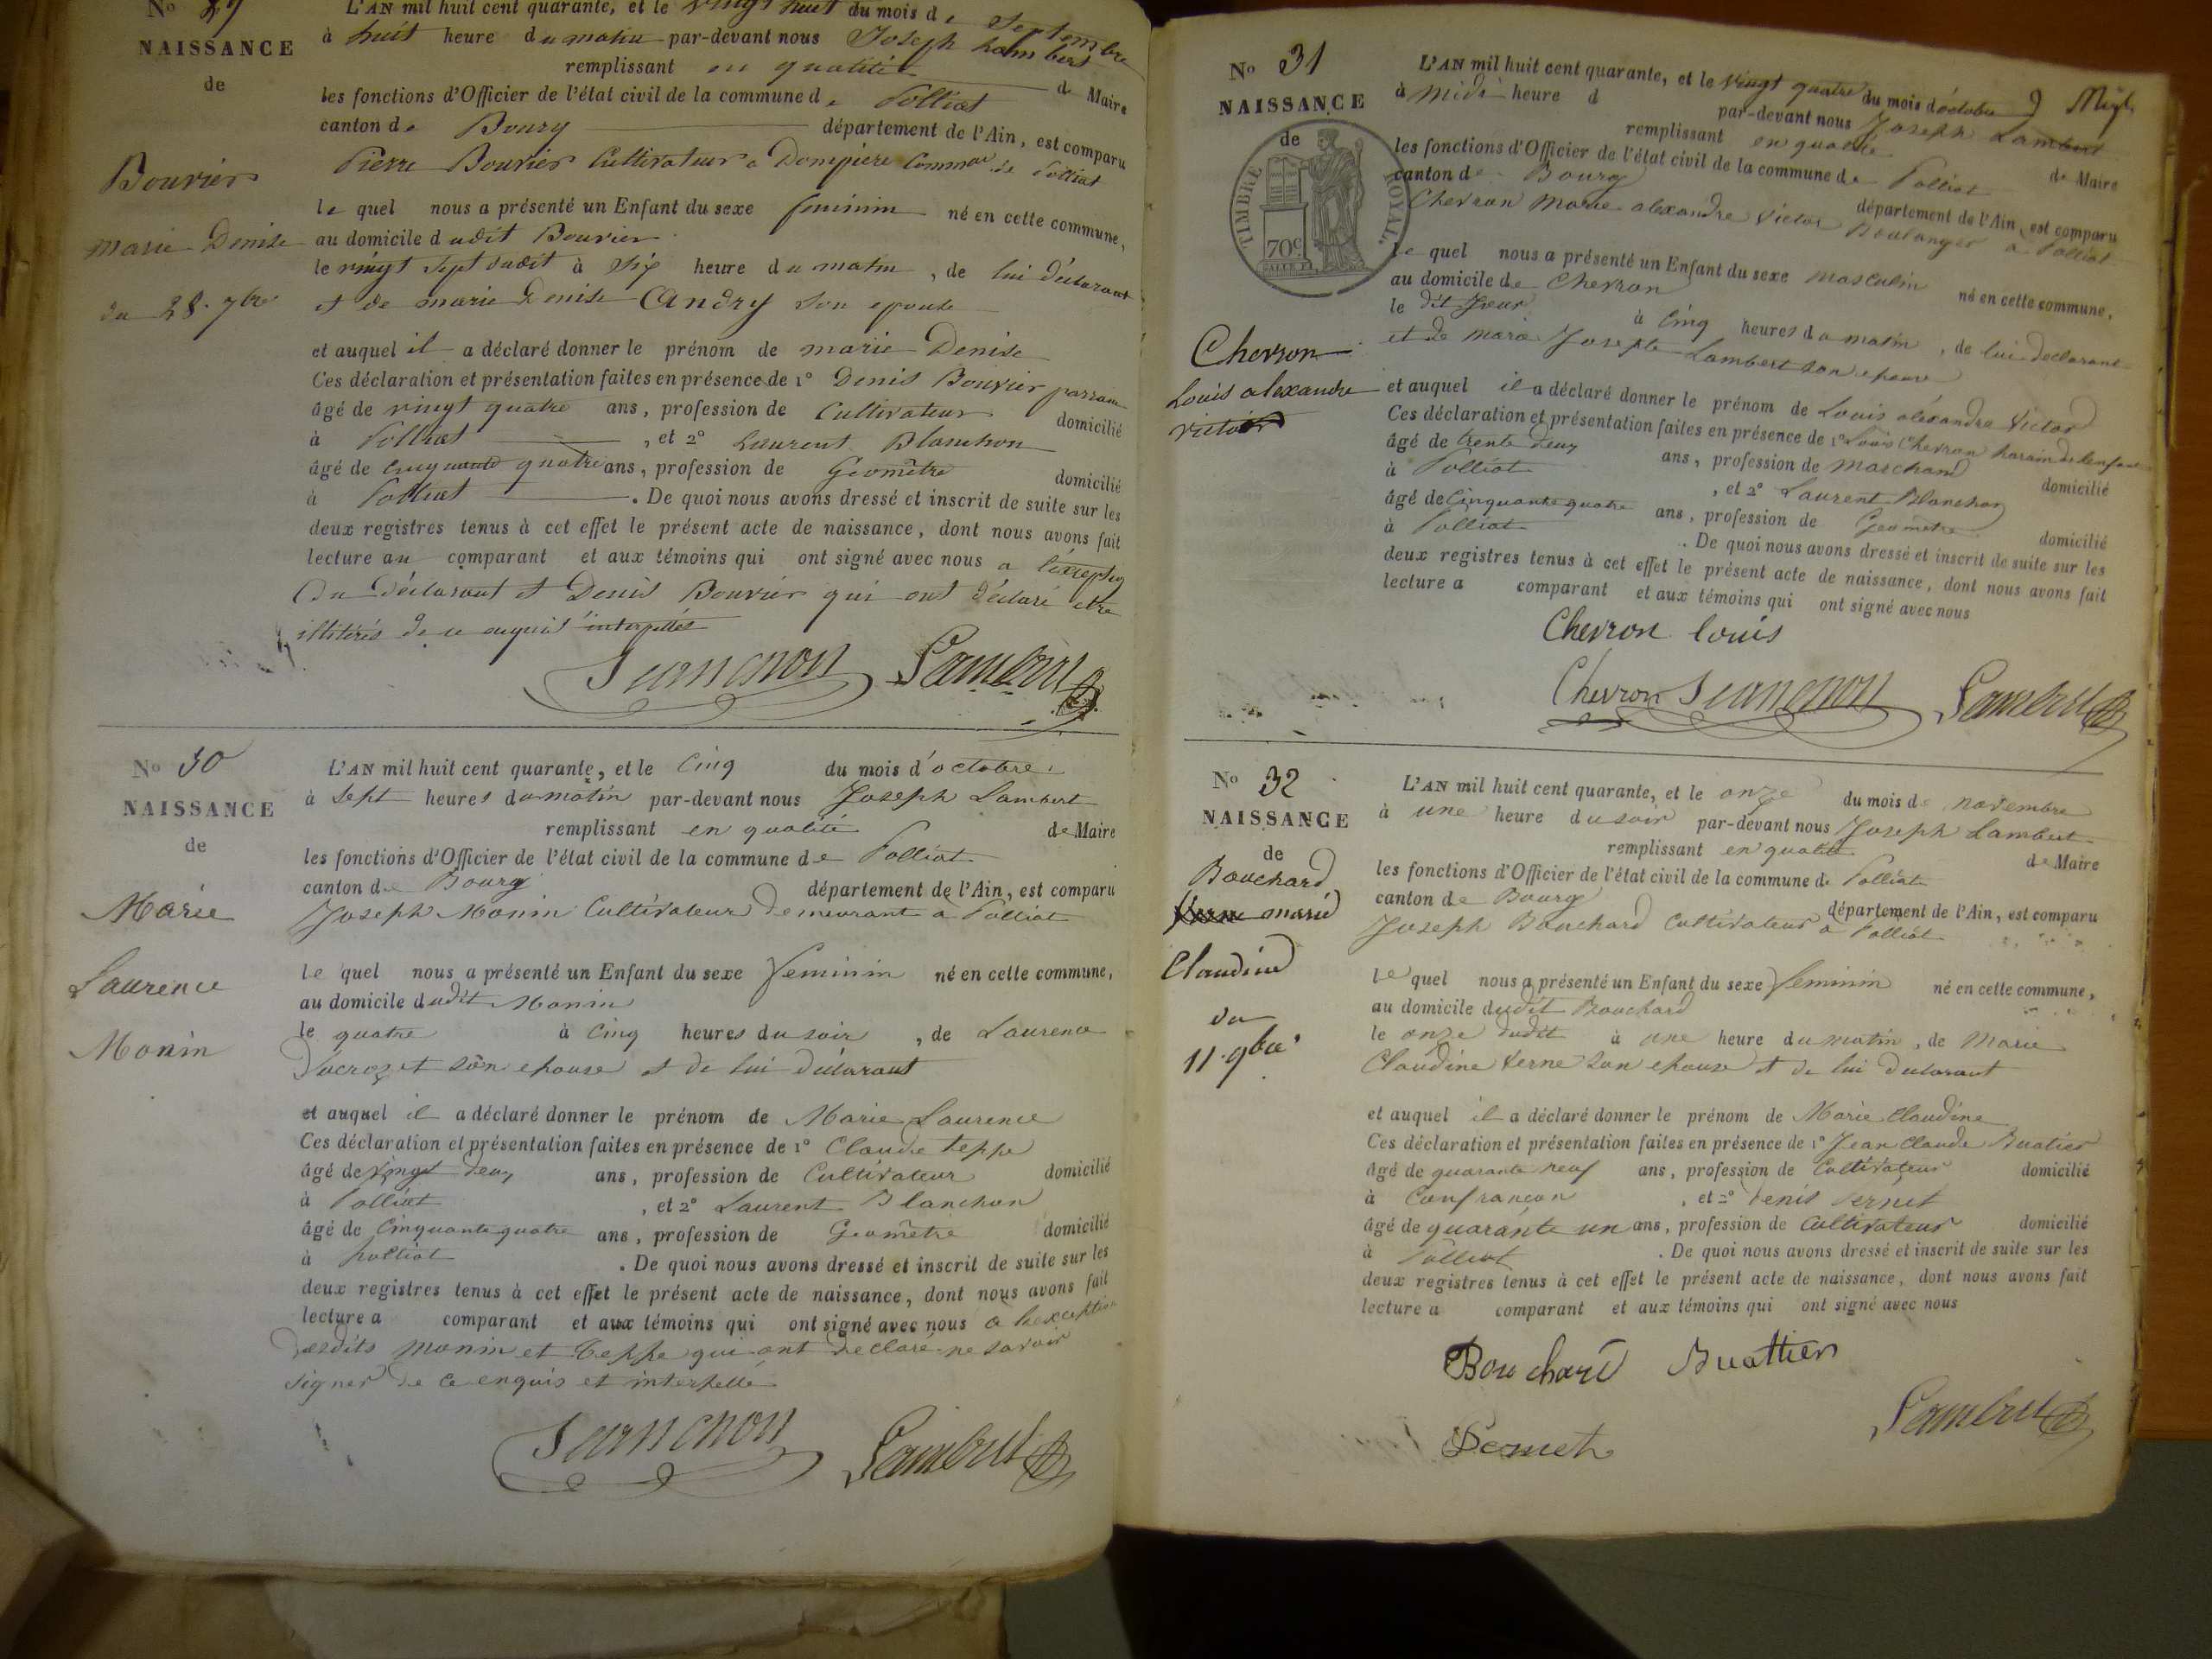 No 29
NAISSANCE
de
Bouvier
marie Denise
du 28. 7bre
L'AN mil huit cent quarante, et le vingt huit du mois de Septembre
à huit heure du matin par-devant nous Joseph Lambert
remplissant en qualité de Maire
les fonctions d'Officier de l'état civil de la commune de Polliat
canton de Bourg département de l'Ain, est comparu
Pierre Bouvier Cultivateur a Dompiere Commne de Polliat
le quel nous a présenté un Enfant du sexe feminim né en cette commune,
au domicile dudit Bouvier
le vingt sept dudit à Six heure du matin, de lui déclarant
et de marie Denise Candry son epouse
et auquel il a déclaré donner le prénom de marie Denise
Ces déclaration et présentation faites en présence de 1° Denis Bouvier parrain
âgé de vingt quatre ans, profession de Cultivateur domicilié
à Polliat, et 2° Laurent Blanchon
âgé de Cinquante quatre ans, profession de Geomêtre domicilié
à Polliat. De quoi nous avons dressé et inscrit de suite sur les
deux registres tenus à cet effet le présent acte de naissance, dont nous avons fait
lecture au comparant et aux témoins qui ont signé avec nous a l'exception
Du déclarant et Denis Bouvier qui ont déclaré etre
illitérés de ce enquis interpellés
Lambert
No 30
NAISSANCE
de
Marie
Laurence
Monin
L'AN mil huit cent quarante, et le Cinq du mois d'octobre
à Sept heures du matin par-devant nous Joseph Lambert
remplissant en qualité de Maire
les fonctions d'Officier de l'état civil de la commune de Polliat
canton de Bourg département de l'Ain, est comparu
Joseph Monin Cultivateur demeurant a Polliat
le quel nous a présenté un Enfant du sexe feminin né en cette commune,
au domicile dudit Monin
le quatre à Cinq heures du soir, de Laurence
Ducrozet son epouse et de lui déclarant
et auquel il a déclaré donner le prénom de Marie Laurence
Ces déclaration et présentation faites en présence de 1° Claude teppe
âgé de vingt deux ans, profession de Cultivateur domicilié
à Polliat, et 2° Laurent Blanchon
âgé de Cinquante quatre ans, profession de Geomêtre domicilié
à polliat. De quoi nous avons dressé et inscrit de suite sur les
deux registres tenus à cet effet le présent acte de naissance, dont nous avons fait
lecture a comparant et aux témoins qui ont signé avec nous a l'exception
desdits Monin et teppe qui ont declaré ne savoir
signer de ce enquis et interpellé
Lambert
No 31
NAISSANCE
de
TIMBRE ROYAL.
70c
Chevron
Louis alexandre
victor
L'AN mil huit cent quarante, et le vingt quatre du mois d'octobre
à midi heure d par-devant nous Joseph Lambert
remplissant en qualité de Maire
les fonctions d'Officier de l'état civil de la commune de Polliat
canton de Bourg département de l'Ain, est comparu
Chevron Marie alexandre Victor Boulanger a Polliat
le quel nous a présenté un Enfant du sexe masculin né en cette commune,
au domicile de Chevron
le dit Jour à Cinq heures du matin, de lui declarant
et de marie Josepte Lambert son epouse
et auquel il a déclaré donner le prénom de Louis aléxandre Victor
Ces déclaration et présentation faites en présence de 1° Louis Chevron parain de l'enfant
âgé de trente deux ans, profession de marchand domicilié
à Polliat, et 2° Laurent Blanchon
âgé de Cinquante quatre ans, profession de Geometre domicilié
à Polliat. De quoi nous avons dressé et inscrit de suite sur les
deux registres tenus à cet effet le présent acte de naissance, dont nous avons fait
lecture a comparant et aux témoins qui ont signé avec nous
Chevron louis
Chevron Lambert
No 32
NAISSANCE
de
Bouchard
marie
Claudine
du
11. 9bre
L'AN mil huit cent quarante, et le onze du mois de novembre
à une heure du soir par-devant nous Joseph Lambert
remplissant en qualité de Maire
les fonctions d'Officier de l'état civil de la commune de Polliat
canton de Bourg département de l'Ain, est comparu
Joseph Bouchard Cultivateur a Polliat
le quel nous a présenté un Enfant du sexe feminin né en cette commune,
au domicile dudit Bouchard
le onze dudit à une heure du matin, de Marie
Claudine Verne son epouse et de lui declarant
et auquel il a déclaré donner le prénom de Marie Claudine
Ces déclaration et présentation faites en présence de 1° Jean Claude Buatier
âgé de quarante neuf ans, profession de Cultivateur domicilié
à Confrançon, et 2° Denis Pernet
âgé de quarante un ans, profession de Cultivateur domicilié
à Polliat. De quoi nous avons dressé et inscrit de suite sur les
deux registres tenus à cet effet le présent acte de naissance, dont nous avons fait
lecture a comparant et aux témoins qui ont signé avec nous
Bouchard Buattier
Lambert
Pernet